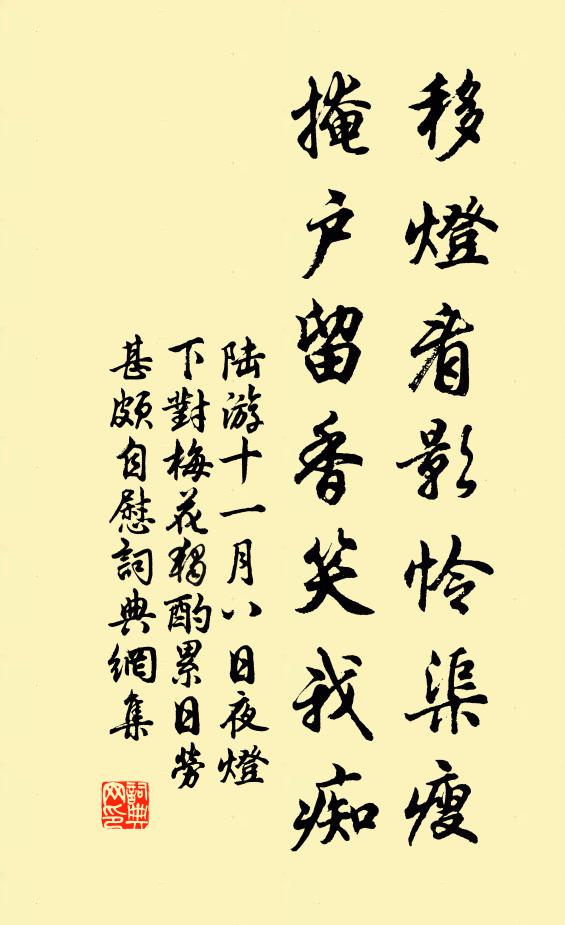 移燈看影怜渠瘦
掩户留香笑我痴
陆游十一月八日夜燈
下對梅花獨酌累日勞
甚頗自慰詞典網集
詞典
网印